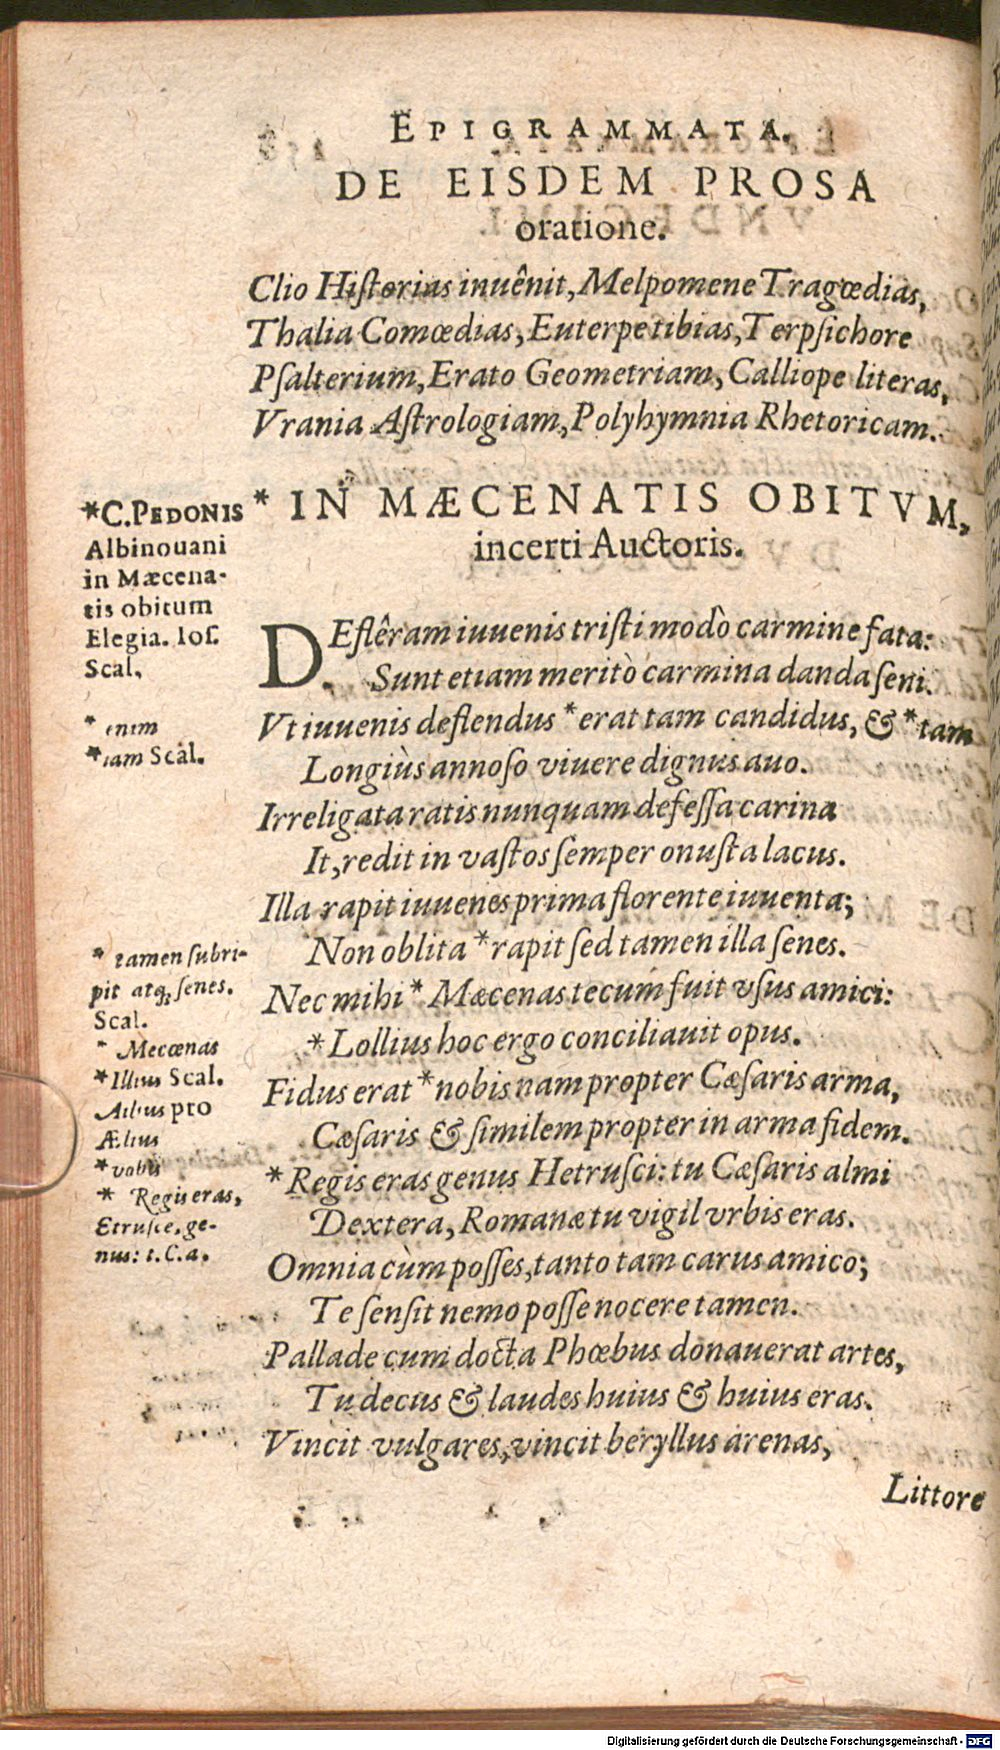 EPIGRAMMATA.
DE EISDEM PROSA
oratione.
Clio Hiſtorias inuênit, Melpomene Tragœdias,
Thalia Comœdias, Euterpe tibias, Terpſichore
Pſalterium, Erato Geometriam, Calliope literas,
Vrania Aſtrologiam, Polyhymnia Rhetoricam.
* IN MÆCENATIS OBITVM,
incerti Auctoris.
DEflêram iuuenis triſti modò carmine fata:
Sunt etiam meritò carmina danda ſeni.
Vt iuuenis deflendus * erat tam candidus, & * tam
Longiùs annoſo viuere dignus auo.
Irreligata ratis nunquam defeſſa carina
It, redit in vaſtos ſemper onuſta lacus.
Illa rapit iuuenes prima florente iuuenta;
Non oblita * rapit ſed tamen illa ſenes.
Nec mihi * Mæcenas tecum fuit vſus amici:
* Lollius hoc ergo conciliauit opus.
Fidus erat * nobis nam propter Cæſaris arma,
Cæſaris & ſimilem propter in arma fidem.
* Regis eras genus Hetruſci: tu Cæſaris almi
Dextera, Romanæ tu vigil vrbis eras.
Omnia cùm poſſes, tanto tam carus amico;
Te ſenſit nemo poſſe nocere tamen.
Pallade cum docta Phœbus donauerat artes,
Tu decus & laudes huius & huius eras.
Vincit vulgares, vincit beryllus arenas,
Littore
*C. PEDONIS
Albinouani
in Mæcena-
tis obitum
Elegia. Ioſ.
Scal.
* enim
* iam Scal.
* tamen ſubri-
pit atq; ſenes.
Scal.
* Mecœnas
* Illius Scal.
Ailius pro
Ælius
* vobis
* Regis eras,
Etruſce, ge-
nus: t. C. a.
Digitalisierung gefördert durch die Deutsche Forschungsgemeinschaft - DFG